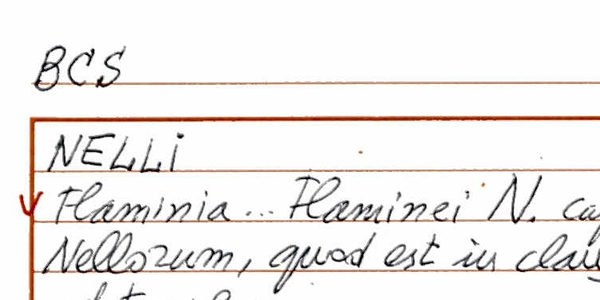 BCS
NELLI
Flaminia ... Flaminei N.
Nellorum, quod est in